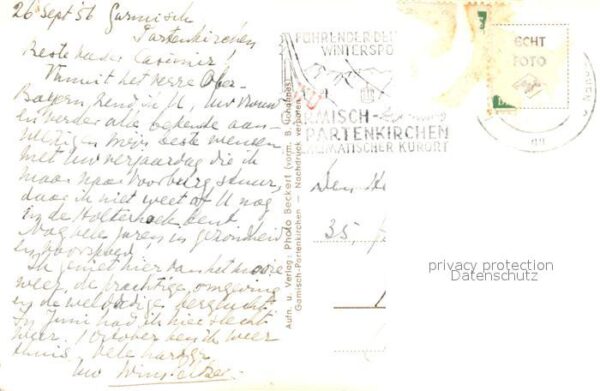 26 Sept 56 Garmisch
Partenkirchen
Beste heer Casimir,
Vanuit het verre Ober-
Bayern zend ik U, Uw vrouw
en verder alle bekende aan-
wezigen mijn beste wensen
met Uw verjaardag die ik
maar naar Voorburg stuur,
daar ik niet weet of U nog
in de Holterhoek bent
Nog vele jaren in gezondheid
en voorspoed!
Ik geniet hier van het mooie
weer, de prachtige omgeving
en de weldadige berglucht
In Juni had ik hier slecht
weer. 1 October ben ik weer
thuis. Vele hartgr.
Uw
FÜHRENDER DE
WINTERSPO
RMISCH-
PARTENKIRCHEN
IMATISCHER KURORT
ECHT
FOTO
Aufn. u. Verlag: Photo Beckert (vorm. B. Johannes)
Garmisch-Partenkirchen — Nachdruck verboten
Den
35,
privacy protection
Datenschutz